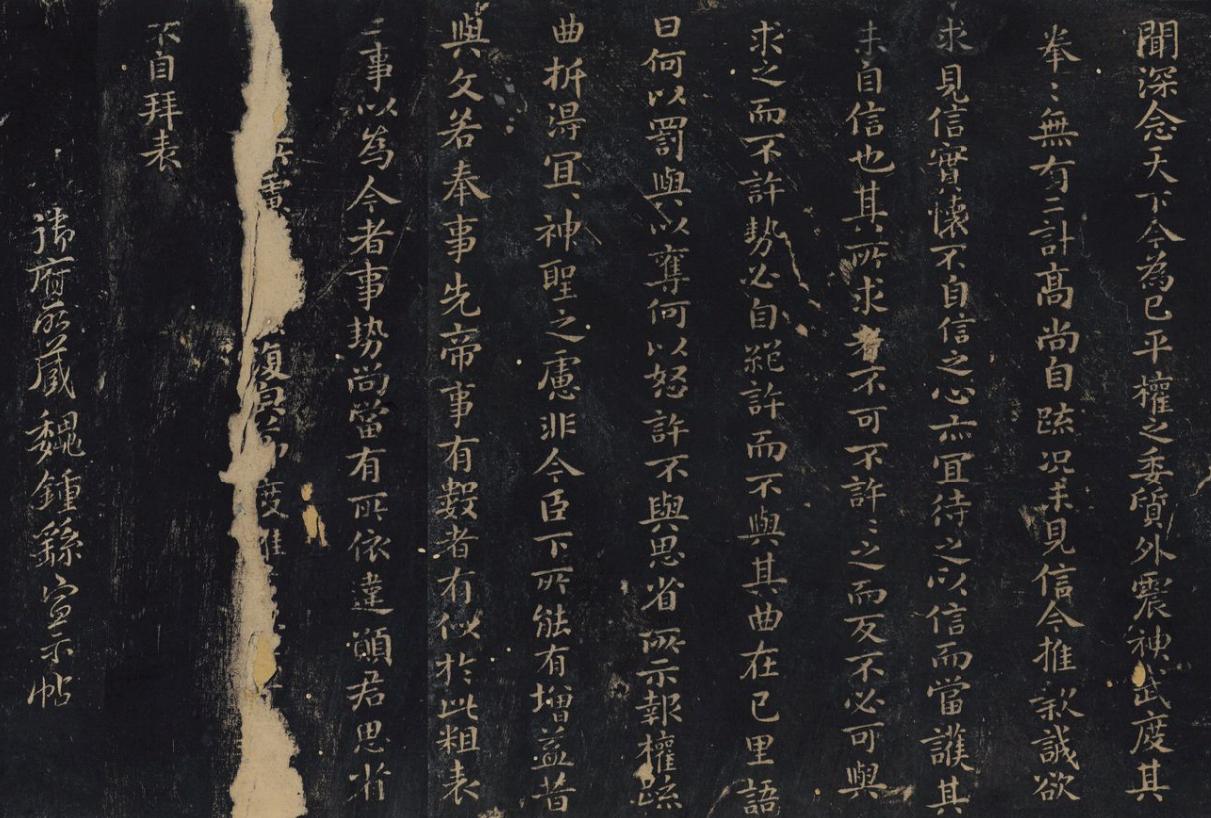 聞深念天下今為已平權之委質外震神武度其
拳〻無有二計高尚自疏况未見信今推款誠欲
求見信實懷不自信之心亦宜待之以信而當護其
未自信也其所求者不可不許〻之而反不必可與
求之而不許勢必自絕許而不與其曲在己里語
曰何以罰與以奪何以怒許不與思省所示報權疏
曲折得冝〻神聖之慮非今臣下所能有增益昔
與文若奉事先帝事有數者有似於此粗表
二事以為今者事勢尚當有所依違願君思省
慮 復 度
不自拜表
御府所藏魏鍾繇宣示帖